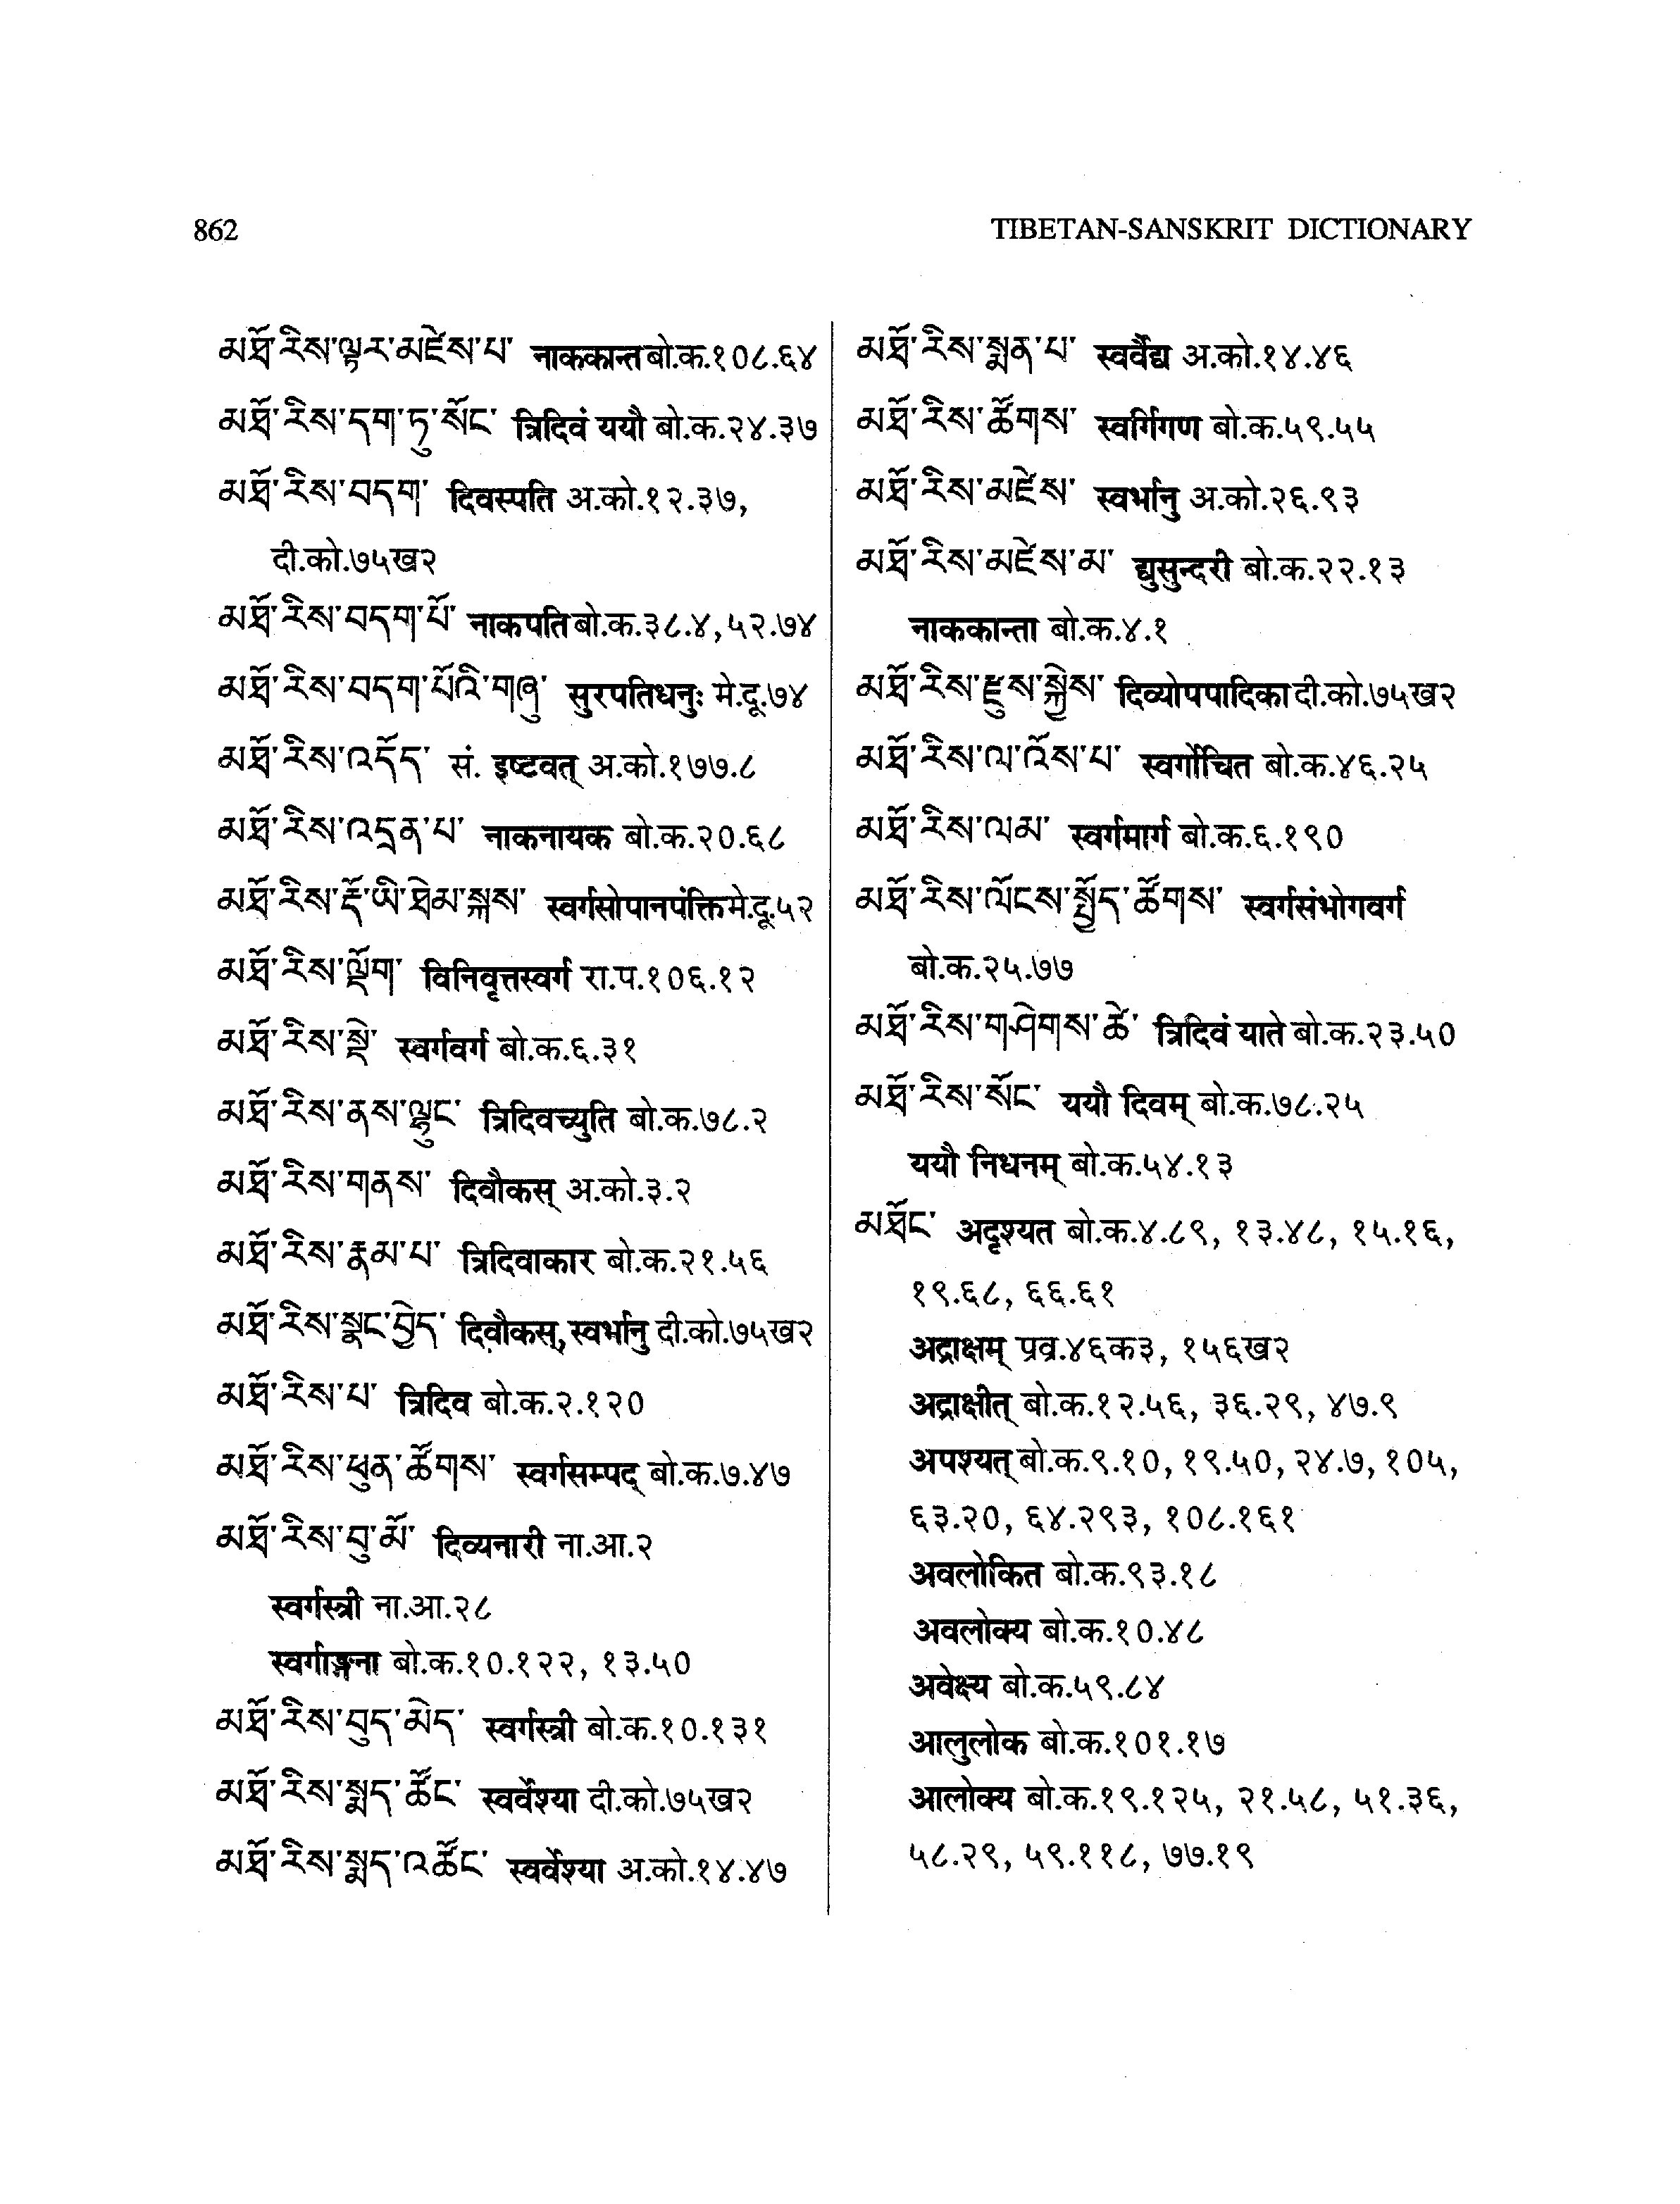 862
TIBETAN-SANSKRIT DICTIONARY
མཐོ་རིས་ལྟར་མཛེས་པ་ नाककान्त बो.क.१०८.६४
མཐོ་རིས་དག་ཏུ་སོང་ त्रिदिवं ययौ बो.क.२४.३७
མཐོ་རིས་བདག་ दिवस्पति अ.को.१२.३७,
दी.को.७५ख२
མཐོ་རིས་བདག་པོ་ नाकपति बो.क.३८.४, ५२.७४
མཐོ་རིས་བདག་པོའི་གཞུ་ सुरपतिधनुः मे.दू.७४
མཐོ་རིས་འདོད་ सं. इष्टवत् अ.को.१७७.८
མཐོ་རིས་འདྲན་པ་ नाकनायक बो.क.२०.६८
མཐོ་རིས་རྡོ་ཡི་ཐེམ་སྐས་ स्वर्गसोपानपंक्ति मे.दू.५२
མཐོ་རིས་ལྡོག་ विनिवृत्तस्वर्ग रा.प.१०६.१२
མཐོ་རིས་སྡེ་ स्वर्गवर्ग बो.क.६.३१
མཐོ་རིས་ནས་ལྟུང་ त्रिदिवच्युति बो.क.७८.२
མཐོ་རིས་གནས་ दिवौकस् अ.को.३.२
མཐོ་རིས་རྣམ་པ་ त्रिदिवाकार बो.क.२१.५६
མཐོ་རིས་སྣང་བྱེད་ दिवौकस्, स्वर्भानु दी.को.७५ख२
མཐོ་རིས་པ་ त्रिदिव बो.क.२.१२०
མཐོ་རིས་ཕུན་ཚོགས་ स्वर्गसम्पद् बो.क.७.४७
མཐོ་རིས་བུ་མོ་ दिव्यनारी ना.आ.२
स्वर्गस्त्री ना.आ.२८
स्वर्गाङ्गना बो.क.१०.१२२, १३.५०
མཐོ་རིས་བུད་མེད་ स्वर्गस्त्री बो.क.१०.१३१
མཐོ་རིས་སྨད་ཚོང་ स्वर्वेश्या दी.को.७५ख२
མཐོ་རིས་སྨད་འཚོང་ स्वर्वेश्या अ.को.१४.४७
མཐོ་རིས་སྨན་པ་ स्वर्वैद्य अ.को.१४.४६
མཐོ་རིས་ཚོགས་ स्वर्गिगण बो.क.५९.५५
མཐོ་རིས་མཛེས་ स्वर्भानु अ.को.२६.९३
མཐོ་རིས་མཛེས་མ་ द्युसुन्दरी बो.क.२२.१३
नाककान्ता बो.क.४.१
མཐོ་རིས་རྫུས་སྐྱེས་ दिव्योपपादिका दी.को.७५ख२
མཐོ་རིས་ལ་འོས་པ་ स्वर्गोचित बो.क.४६.२५
མཐོ་རིས་ལམ་ स्वर्गमार्ग बो.क.६.१९०
མཐོ་རིས་ལོངས་སྤྱོད་ཚོགས་ स्वर्गसंभोगवर्ग
बो.क.२५.७७
མཐོ་རིས་གཤེགས་ཚེ་ त्रिदिवं याते बो.क.२३.५०
མཐོ་རིས་སོང་ ययौ दिवम् बो.क.७८.२५
ययौ निधनम् बो.क.५४.१३
མཐོང་ अदृश्यत बो.क.४.८९, १३.४८, १५.१६,
१९.६८, ६६.६१
अद्राक्षम् प्रव्र.४६क३, १५६ख२
अद्राक्षीत् बो.क.१२.५६, ३६.२९, ४७.९
अपश्यत् बो.क.९.१०, १९.५०, २४.७, १०५,
६३.२०, ६४.२९३, १०८.१६१
अवलोकित बो.क.९३.१८
अवलोक्य बो.क.१०.४८
अवेक्ष्य बो.क.५९.८४
आलुलोक बो.क.१०१.१७
आलोक्य बो.क.१९.१२५, २१.५८, ५१.३६,
५८.२९, ५९.११८, ७७.१९